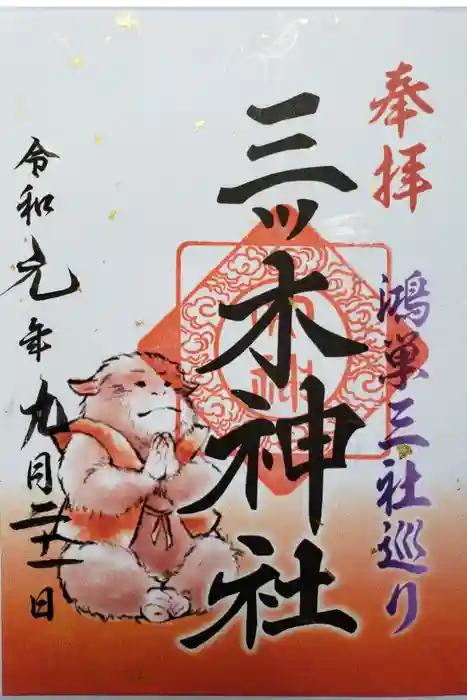 奉拝
鴻巣三社巡り
三ツ木神社
令和元年九月二十一日